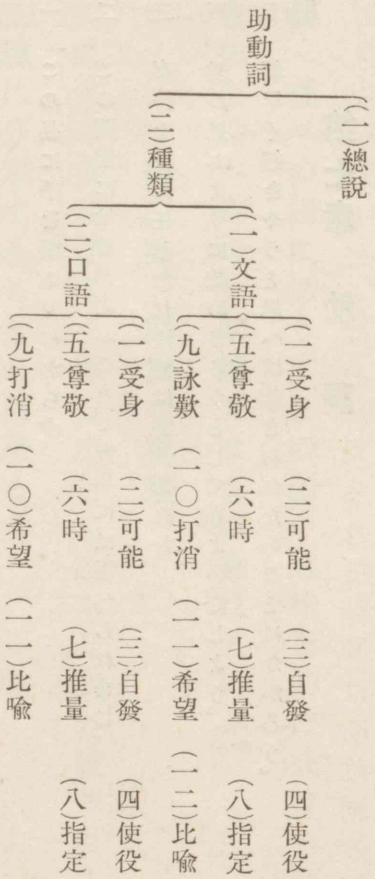 助動詞
(一)總說
(二)種類
(一)文語
(一)受身 (二)可能 (三)自發 (四)使役
(五)尊敬 (六)時 (七)推量 (八)指定
(九)詠歎 (一〇)打消 (一一)希望 (一二)比喩
(二)口語
(一)受身 (二)可能 (三)自發 (四)使役
(五)尊敬 (六)時 (七)推量 (八)指定
(九)打消 (一〇)希望 (一一)比喩